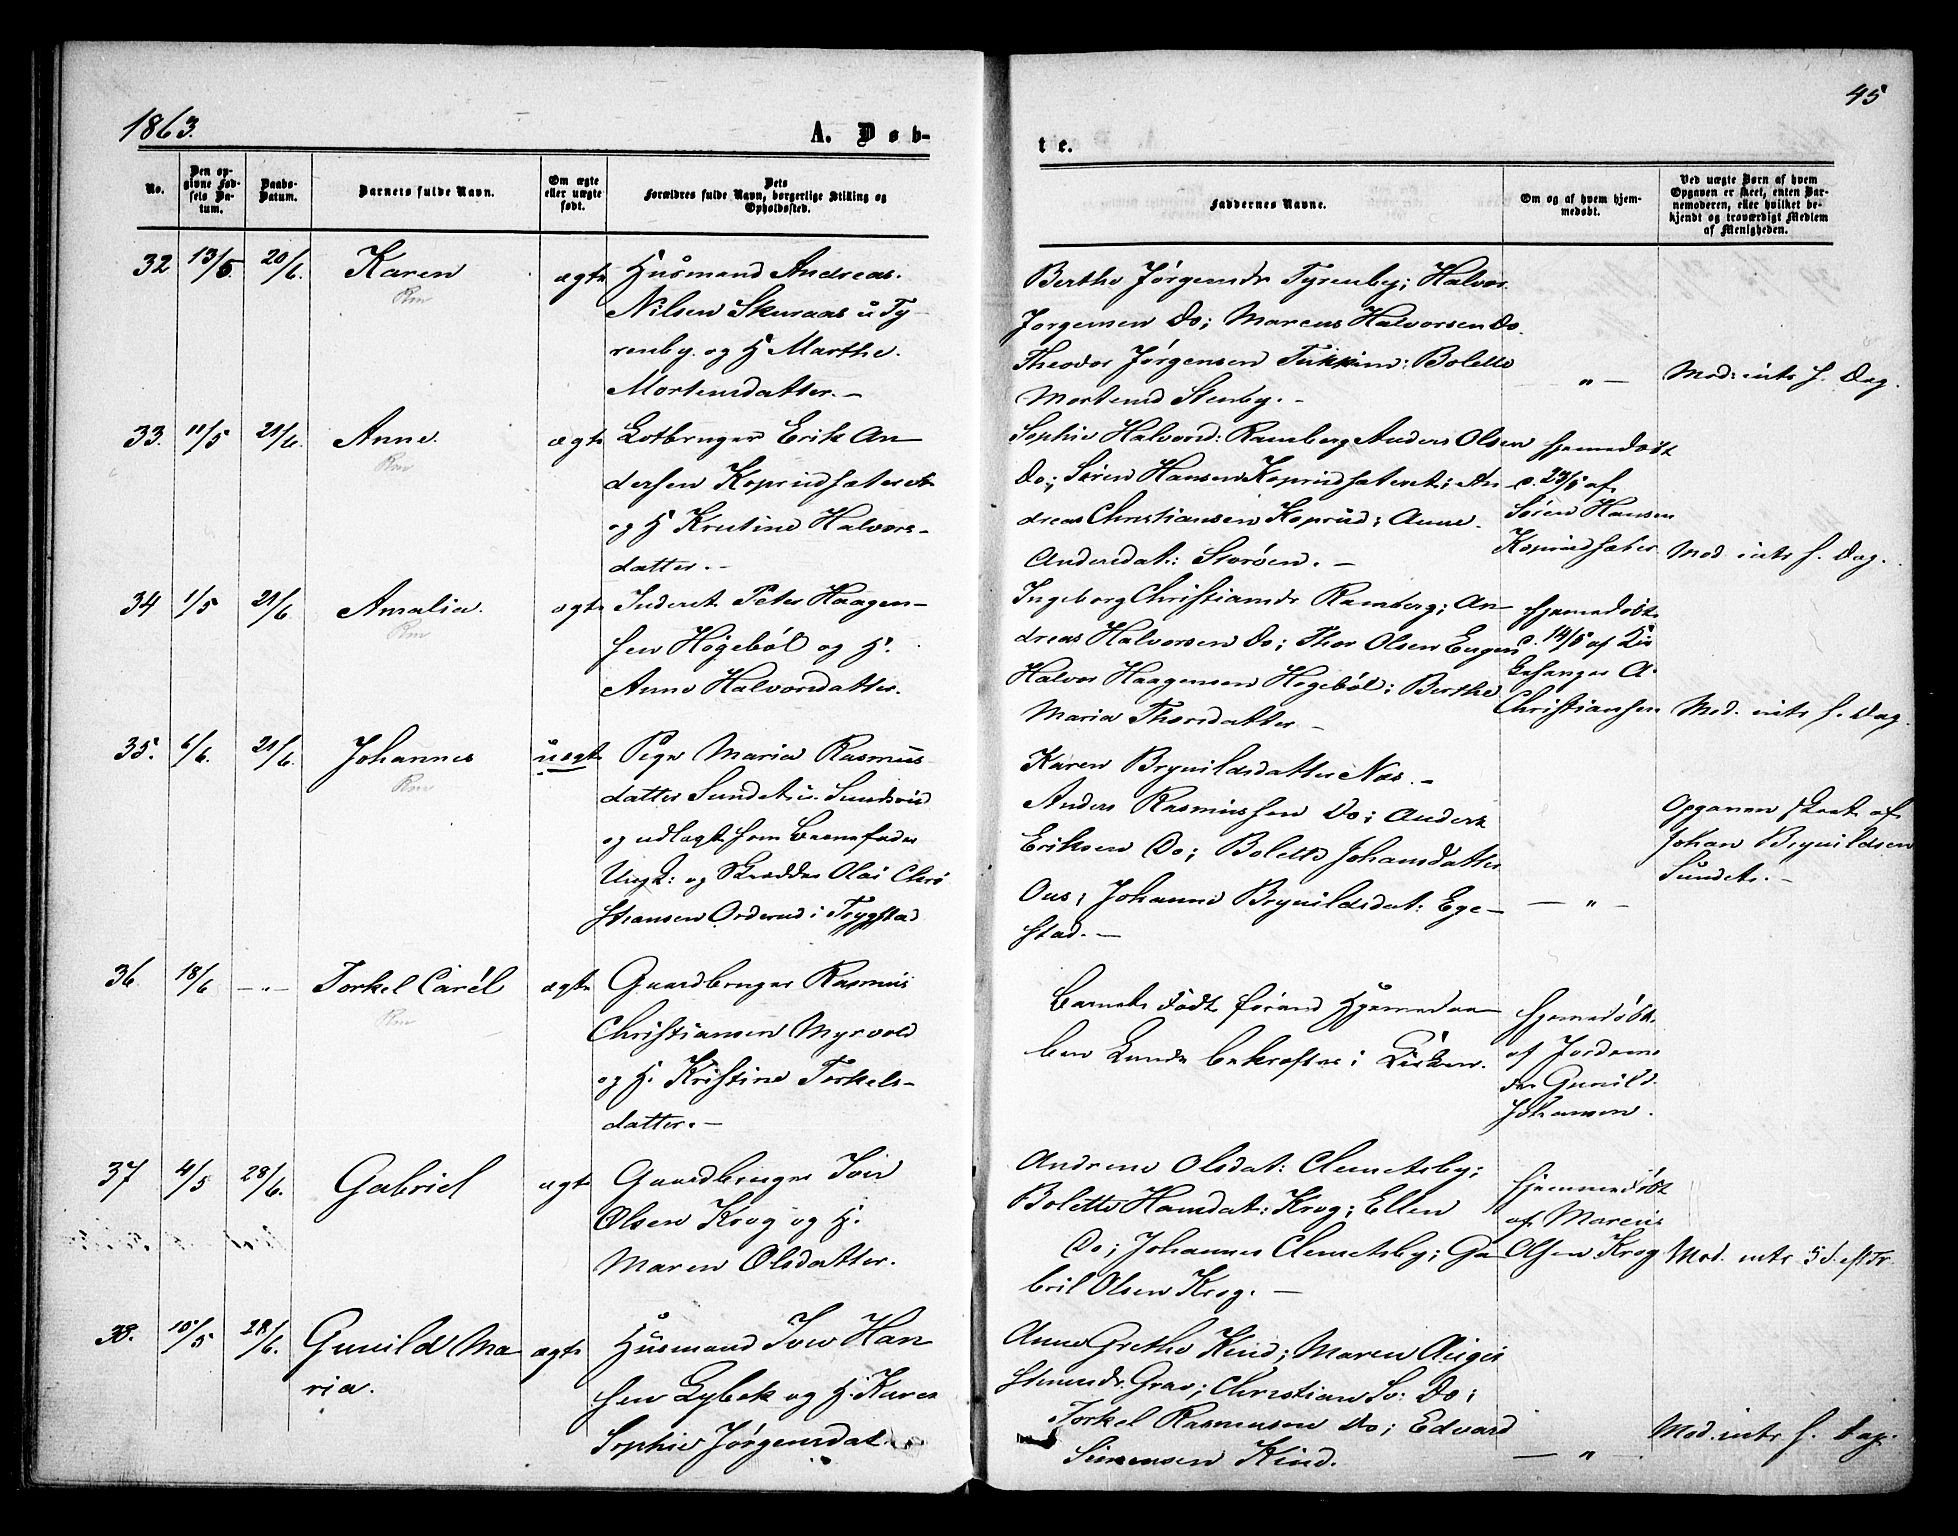 1863.
A. Døb-
te.
45
No.
Den op-
givne Fød-
sels Da-
tum.
Daabs-
Datum.
Barnets fulde Navn.
Om ægte
eller uægte
født.
Dets
Forældres fulde Navn, borgerlige Stilling og
Opholdssted.
Faddernes Navne.
Om og af hvem hjem-
medøbt.
Ved uægte Børn af hvem
Opgaven er skeet, enten Bar-
nemoderen, eller hvilket be-
kjendt og troværdigt Medlem
af Menigheden.
32 13/5. 20/6. Karen ægte Huusmand Andreas
Rm
Nilsen Skuraas u Ty-
renby. og H Marthe.
Mortensdatter. –
Berthe Jørgensdr Tyrenby; Halvor
Jørgensen Do; Marcus Halvorsen Do.
Theodor Jørgensen : Bolette
Mortensd Stenby. –
" – Mod: intr s. Dag.
33. 11/5 21/6. Anne. ægte Lotbruger Erik An
Rm
dersen Koprudsæteret
og H Kristine Halvors-
datter. –
Sophie Halvorsd: Ramberg Anders Olsen
Do; Søren Hansen Koprudsæteret; An
dreas Christiansen Koprud; Anne
Andersdat: Storøen. –
Hjemmedøbt
d. 23/5 af
Søren Hansen
Koprudsæter. Mod. intr s. Dag.
34 1/5 21/6. Amalia. ægte Inderst Peter Haagen-
Rm
sen Høgebøl og H.
Anne Halvorsdatter.
Ingeborg Christiansdr Ramberg; An
dreas Halvorsen Do; Thor Olsen
Halvor Haagensen Høgebøl; Berthe
Maria Thorsdatter –
Hjemmedøbt
d. 14/5 af Kir
kesanger A.
Christiansen Mod. intr s. Dag.
35. 6/6. 21/6. Johannes uægte Pige Maria Rasmus
Rm
datter Sundet u. Sundsrud
og udlagt som Barnefader
Ungk: og Skrædder Olai Chri
stiansen Orderud i Trygstad
Karen Brynildsdatter Næs. –
Anders Rasmussen Do; Anders
Eriksen Do; Bolette Johansdatter
Ous; Johanne Brynildsdat: Ege-
stad. –
– " –
Opgaven skeet af
Johan Brynildsen
Sundet. –
36. 18/6 – " – Torkel Carél ægte Gaardbruger Rasmus
Rm
Christiansen Myrvold
og H. Kristine Torkels-
datter. –
Barnet Født førend Hjemmedaa-
ben kunde bekræftes i Kirken.
Hjemmedøbt
af Jordemo
der Gunild.
Johansen.
37 4/5 28/6. Gabriel ægte Gaardbruger Iver
Olsen Krog og H.
Maren Olsdatter.
Andrine Olsdat: Clemetsby;
Bolette Hansdat: Krog; Ellen
Do; Johannes Clemetsby; Ga
bril Olsen Krog. –
Hjemmedøbt
af Marcus
Olsen Krog Mod. intr 5 S. eft Tr.
38. 10/5 28/6. Gunild Ma ægte Huusmand Iver Han
ria.
sen Lybek og H. Karen
Sophie Jørgensdat.
Anne Grethe Kind; Maren
Grav; Christian Do;
Torkel Rasmussen Do; Edvard
Simensen Kind.
– " . Mod. intr s. Dag.